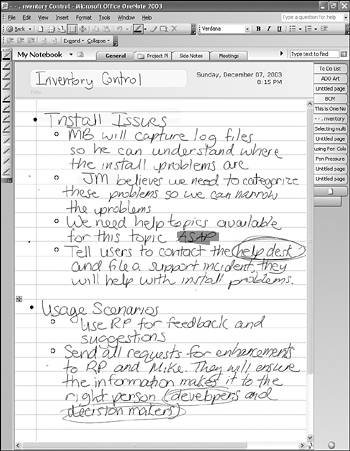 - -. nventory Control - Microsoft Office OneNote 2003
File Edit View Insert Format Tools Table Window Help
Type a question for help
Back
Verdana
B
Expand Collapse
My Notebook
General
Project Pl
Side Notes
Meetings
Type text to find
Inventory Control
Sunday, December 07, 2003
8:15 PM
To Do List
ADO Art
Untitled page
BCM
This is One No
- -. nventory
Selecting multi
Untitled page
using Pen Colo
Pen Pressure
Untitled page
Untitled page
Untitled page
Install Issues
MB will capture log files
so he can understand where
the install problems are
JM believes we need to categorize
these problems so we can narrow
the problems
We need help topics available
for this topic ASAP
Tell users to contact the help desk
and file a support incident, they
will help with install problems.
Usage Scenarios
Use RP for feedback and
suggestions
Send all requests for enhancements
to RP and Mike. They will ensure
the information makes it to the
right person (developers and
decision makers)